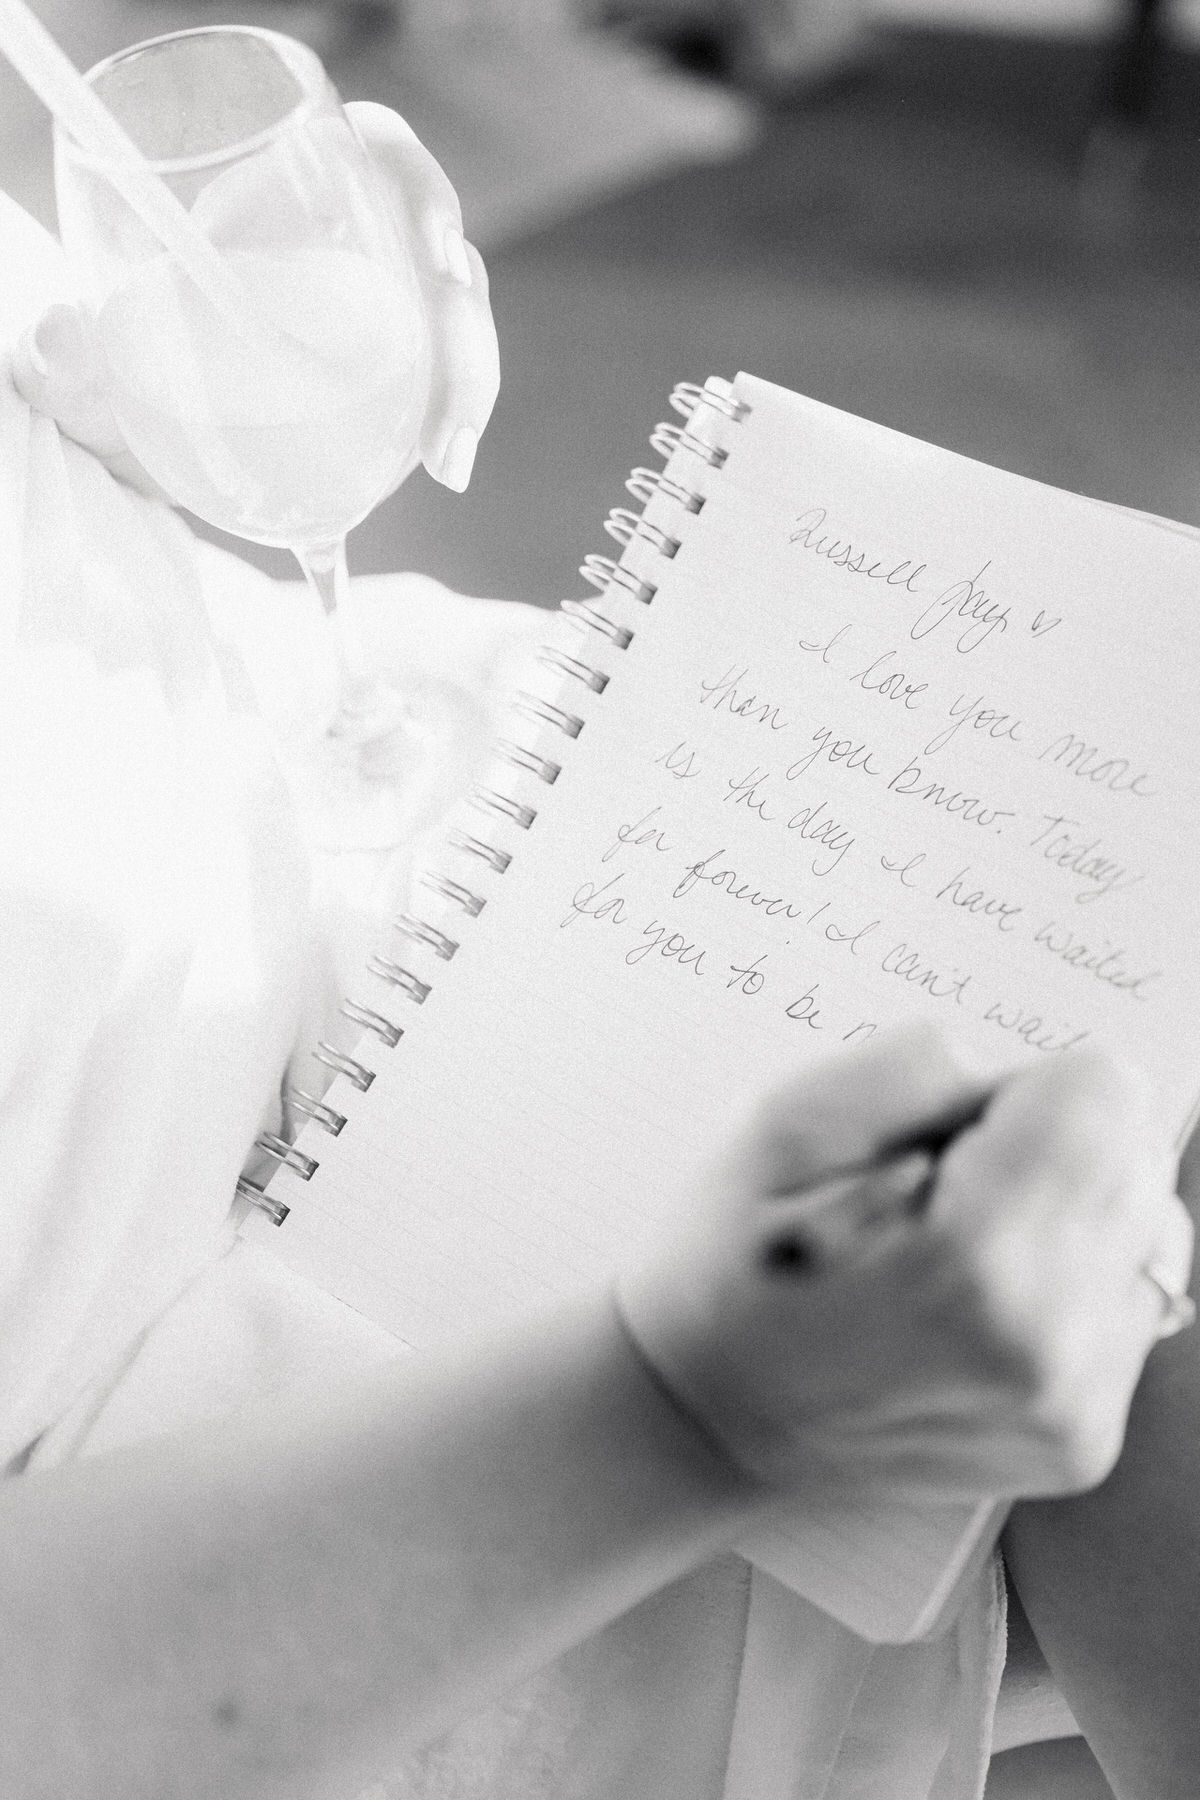 Russell Jay ♡
I love you more
than you know. Today
is the day I have waited
for forever! I can't wait
for you to be